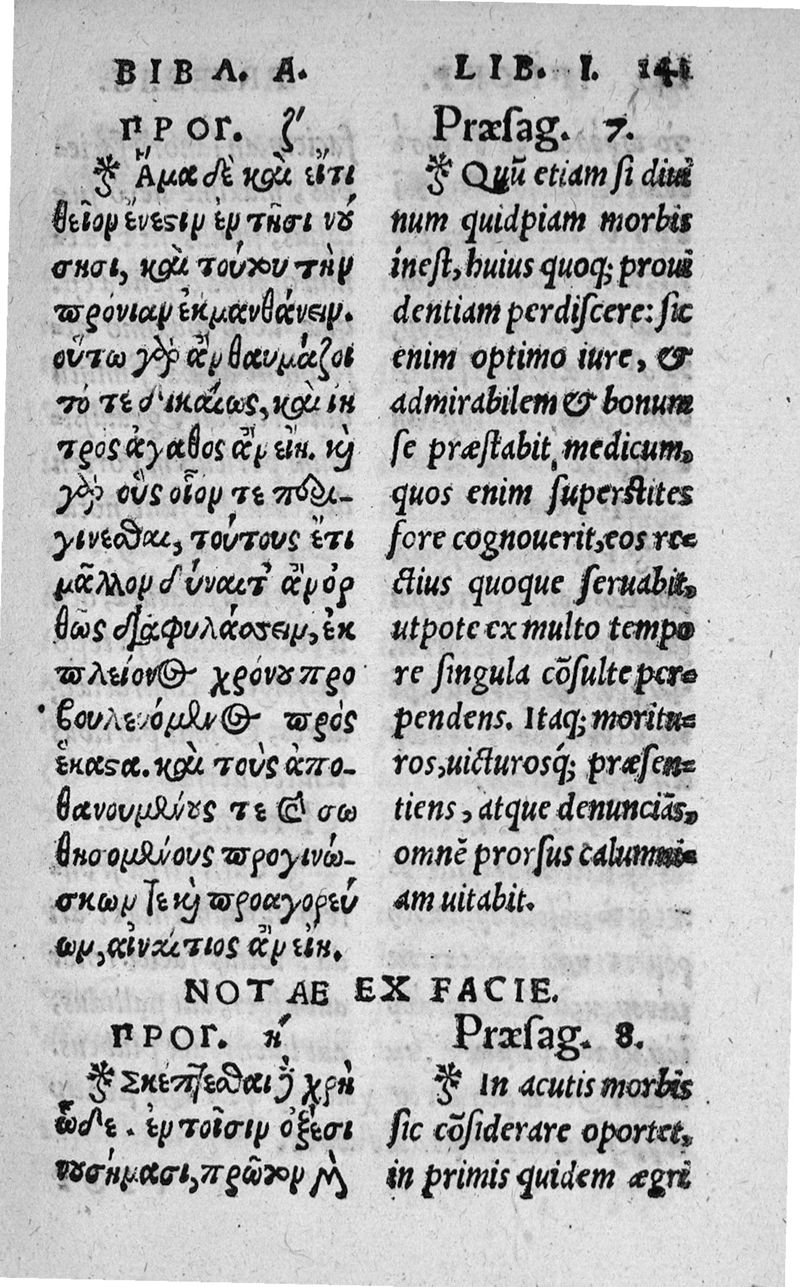 ΒΙΒΛ. Α.
ΠΡΟΓ. ζʹ
Ἅμα δὲ καὶ εἴτι
θεῖον ἔνεστιν ἐν τῇσι νού
σησι, καὶ τούτου τὴν
πρόνιαν ἐκμανθάνειν.
οὕτω γὰρ ἂν θαυμάζοι
τό τε δικαίως, καὶ ἰη
τρὸς ἀγαθος ἂν εἴη. καὶ
γὰρ οὓς οἷον τε περι-
γίνεσθαι, τούτους ἔτι
μᾶλλον δύναιτ' ἂν ὀρ
θῶς διαφυλάσσειν, ἐκ
πλείονος χρόνου προ
βουλευόμενος πρὸς
ἕκαστα. καὶ τοὺς ἀπο-
θανουμένους τε καὶ σω
θησομένους προγινώ-
σκων τε καὶ προαγορεύ
ων, ἀναίτιος ἂν εἴη.
LIB. I. 141
Præsag. 7.
Quũ etiam si diui
num quidpiam morbis
inest, huius quoq; proui
dentiam perdiscere: sic
enim optimo iure, &
admirabilem & bonum
se præstabit medicum,
quos enim superstites
fore cognouerit, eos re=
ctius quoque seruabit,
utpote ex multo tempo
re singula cõsulte per=
pendens. Itaq; moritu=
ros, uicturosq́; præsen=
tiens, atque denunciãs,
omnẽ prorsus calumni=
am uitabit.
NOTAE EX FACIE.
ΠΡΟΓ. ηʹ
Σκέπτεσθαι δὲ χρὴ
ὧδε. ἐν τοῖσιν ὀξέσι
νουσήμασι, πρῶτον μὲν
Præsag. 8.
In acutis morbis
sic cõsiderare oportet,
in primis quidem ægri